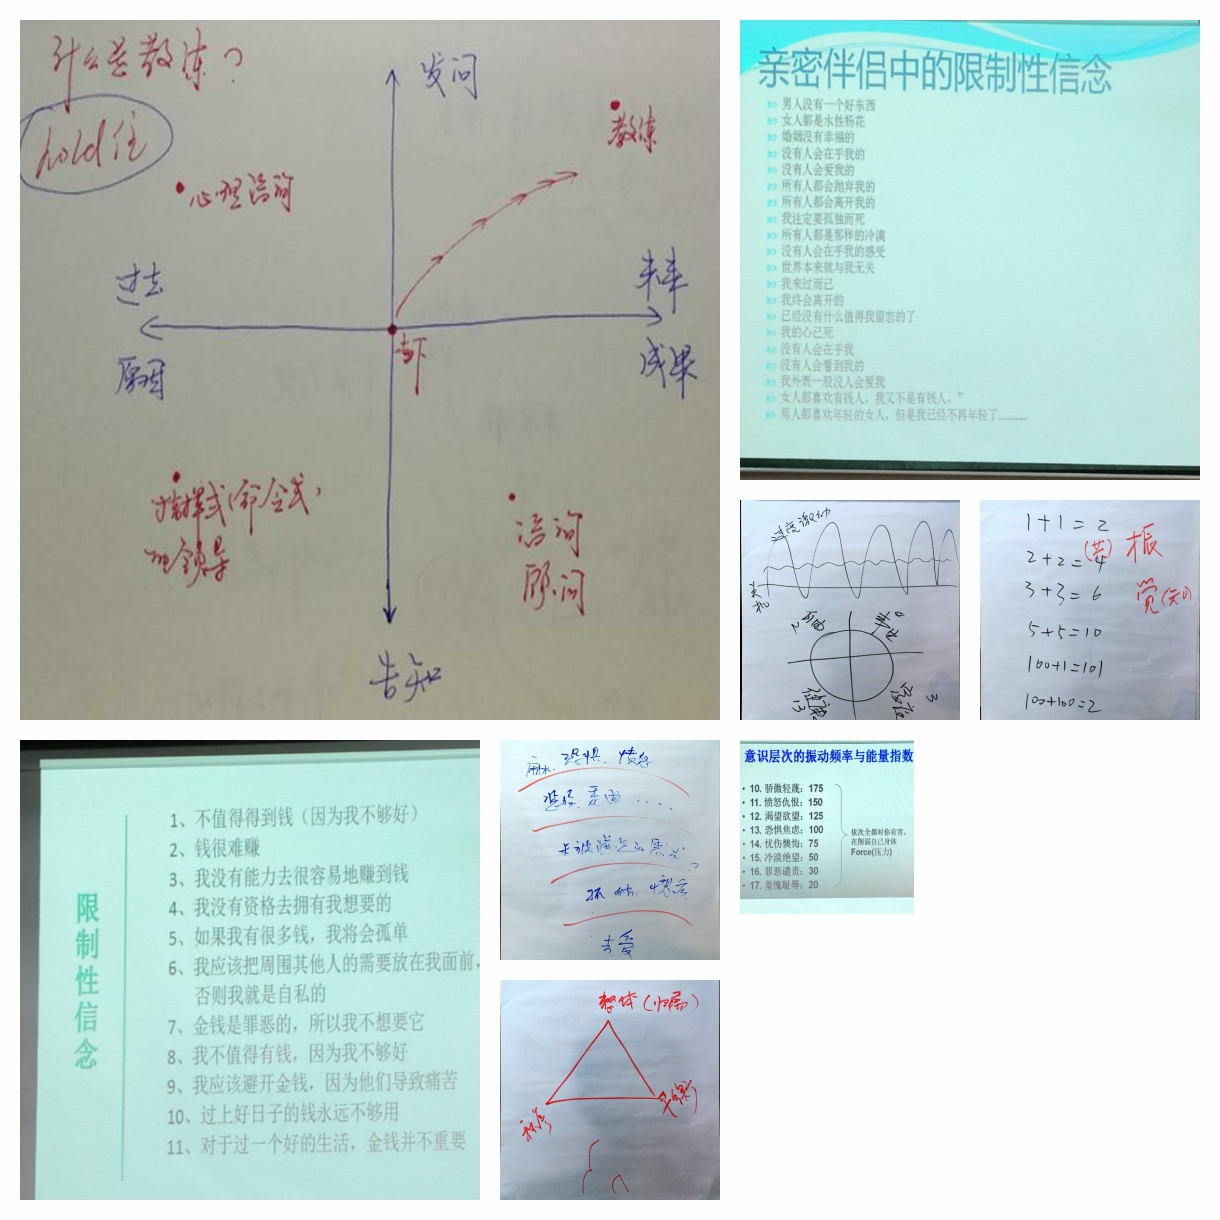 什么是教练？
hold住
发问
教练
心理咨询
过去
未来
原因
当下
成果
指挥式(命令式)
咨询
顾问
告知
亲密伴侣中的限制性信念
男人没有一个好东西
女人都是水性杨花
婚姻没有幸福的
没有人会在乎我的
没有人会爱我的
所有人都会抛弃我的
所有人都会离开我的
我注定要孤独而死
所有人都是那样的冷漠
没有人会在乎我的感受
世界本来就与我无关
我来过而已
我终会离开的
已经没有什么值得我留恋的了
我的心已死
没有人会在乎我
没有人会看到我的
我外表一般没人会爱我
女人都喜欢有钱人，我又不是有钱人。”
男人都喜欢年轻的女人，但是我已经不再年轻了............
过度激动
关机
2 自由
13 健康
3
1+1=2
2+2=4
3+3=6
5+5=10
100+1=101
100+100=2
振
觉
限制性信念
1、不值得得到钱（因为我不够好）
2、钱很难赚
3、我没有能力去很容易地赚到钱
4、我没有资格去拥有我想要的
5、如果我有很多钱，我将会孤单
6、我应该把周围其他人的需要放在我面前，
否则我就是自私的
7、金钱是罪恶的，所以我不想要它
8、我不值得有钱，因为我不够好
9、我应该避开金钱，因为他们导致痛苦
10、过上好日子的钱永远不够用
11、对于过一个好的生活，金钱并不重要
麻木、恐惧、愤怒
悲伤、委曲……
未被满足的需求
去爱
整体(归属)
秩序
平衡
意识层次的振动频率与能量指数
• 10. 骄傲轻蔑：175
• 11. 愤怒仇恨：150
• 12. 渴望欲望：125
• 13. 恐惧焦虑：100
• 14. 忧伤懊悔：75
• 15. 冷漠绝望：50
• 16. 罪恶谴责：30
• 17. 羞愧耻辱：20
依次全都对你有害，
在削弱自己身体
Force(压力)